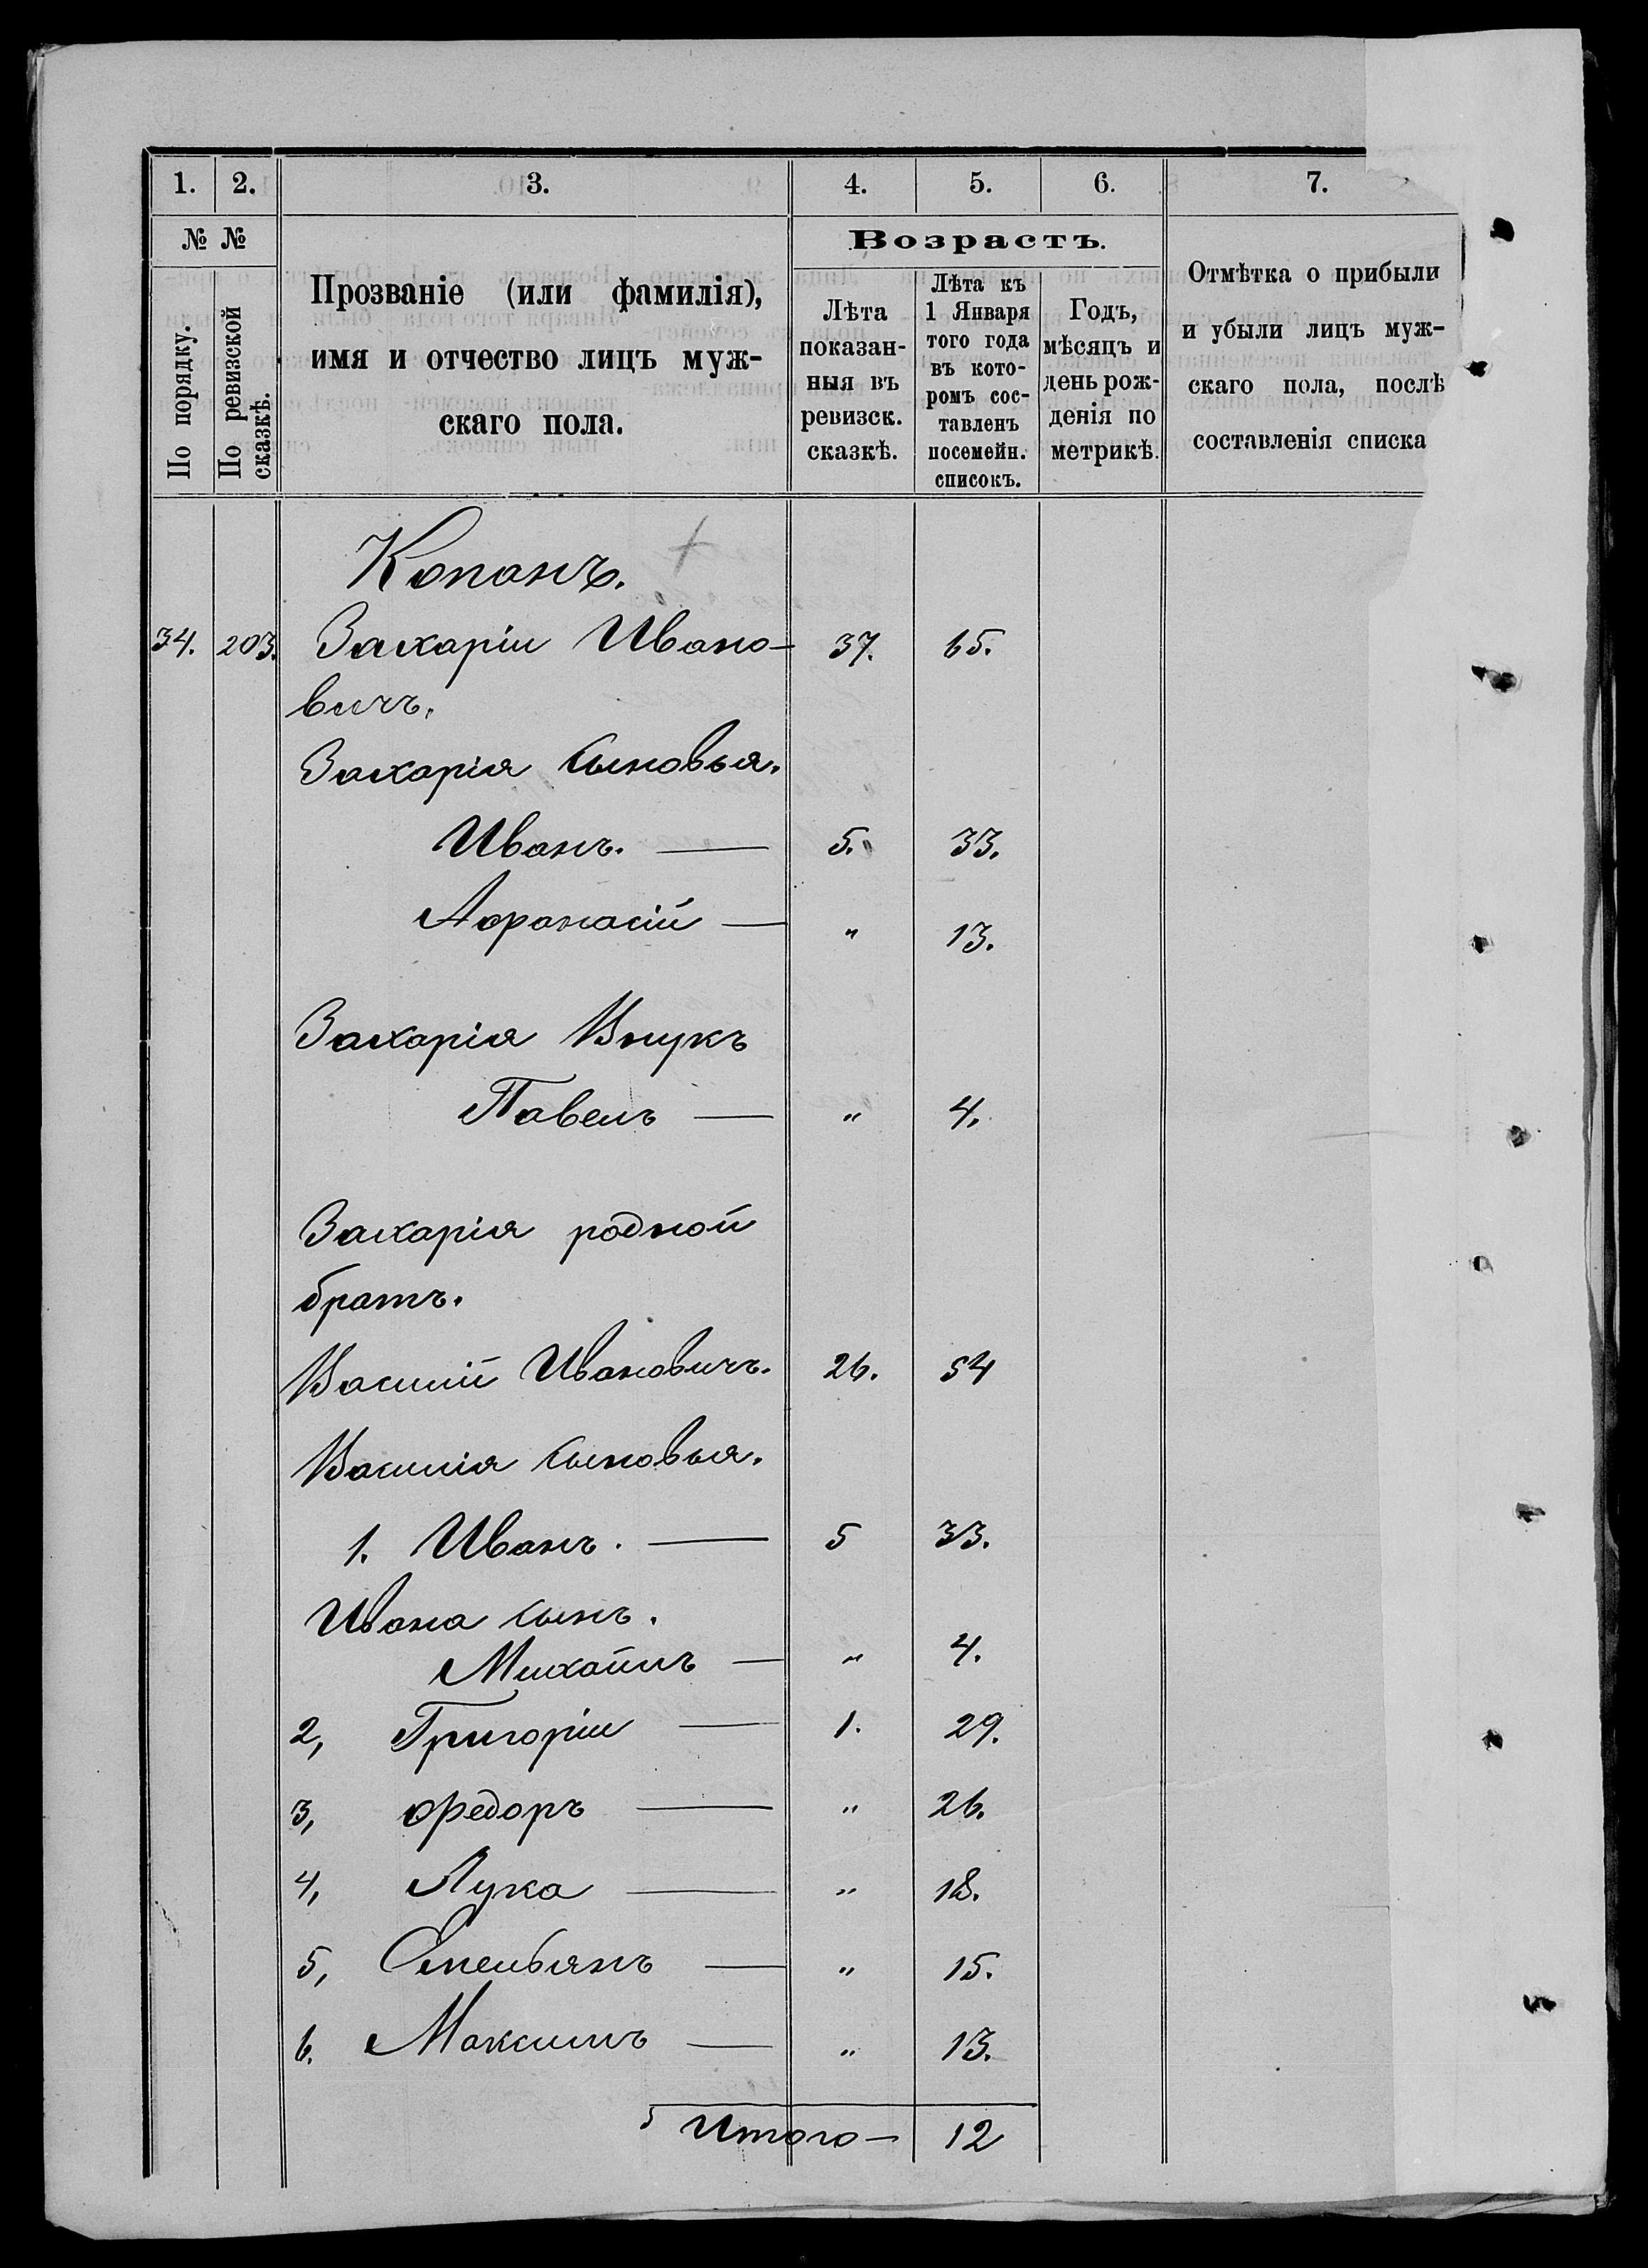 1. 2. 3. 4. 5. 6. 7.
№ №
По порядку.
По ревизской сказкѣ.
Прозваніе (или фамилія),
имя и отчество лицъ муж-
скаго пола.
Возрастъ.
Лѣта
показан-
ныя въ
ревизск.
сказкѣ.
Лѣта къ
1 Января
того года
въ кото-
ромъ сос-
тавленъ
посемейн.
списокъ.
Годъ,
мѣсяцъ и
день рож-
денія по
метрикѣ.
Отмѣтка о прибыли
и убыли лицъ муж-
скаго пола, послѣ
составленія списка
Копанъ.
34. 203. Захаріи Ивано- 37. 65.
вичъ.
Захарія сыновья.
Иванъ. — 5. 33.
Афанасій — „ 13.
Захарія Внукъ
Павелъ — „ 4.
Захарія родной
братъ.
Василій Ивановичъ. 26. 54
Василія сыновья.
1. Иванъ. — 5 33.
Ивана сынъ.
Михаилъ — „ 4.
2, Григоріи — 1. 29.
3, Федоръ — „ 26.
4, Лука — „ 18.
5, Емельянъ — „ 15.
6. Максимъ — „ 13.
Итого — 12